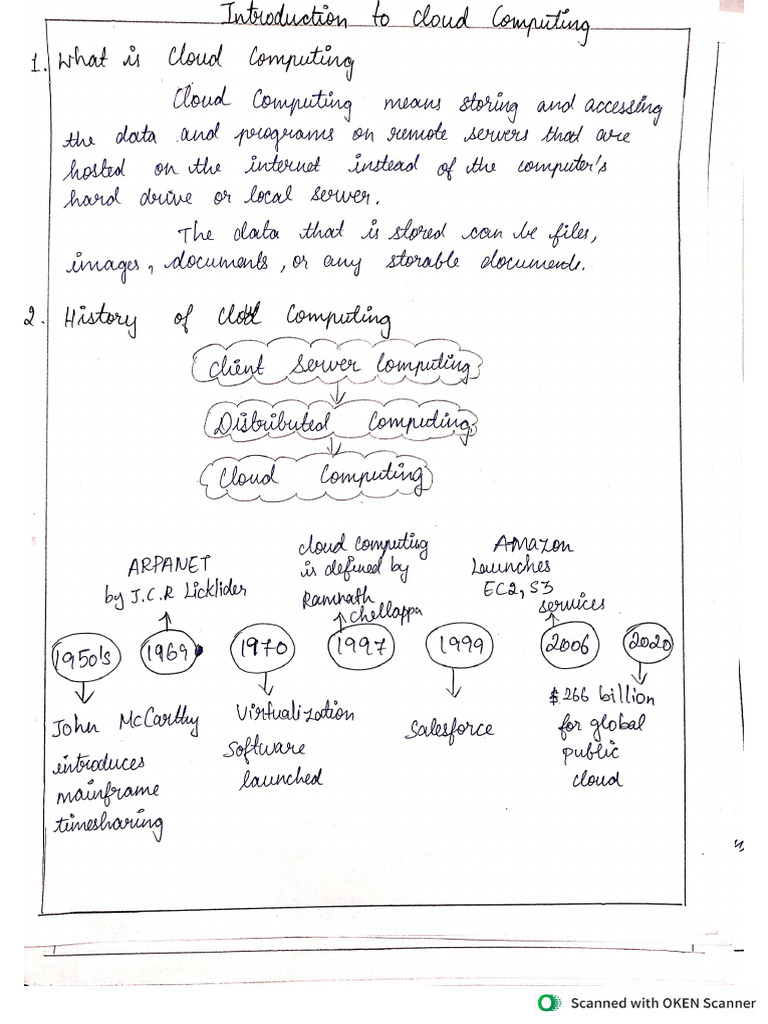 Introduction to Cloud Computing
1. What is Cloud Computing
Cloud Computing means storing and accessing
the data and programs on remote servers that are
hosted on the internet instead of the computer's
hard drive or local server.
The data that is stored can be files,
images, documents, or any storable document.
2. History of Cloud Computing
Client Server Computing
Distributed Computing
Cloud Computing
ARPANET
by J.C.R Licklider
cloud computing
is defined by
Ramnath
chellappa
Amazon
Launches
EC2, S3
services
1950's 1969 1970 1997 1999 2006 2020
John McCarthy
introduces
mainframe
timesharing
Virtualization
Software
launched
Salesforce
$266 billion
for global
public
cloud
Scanned with OKEN Scanner